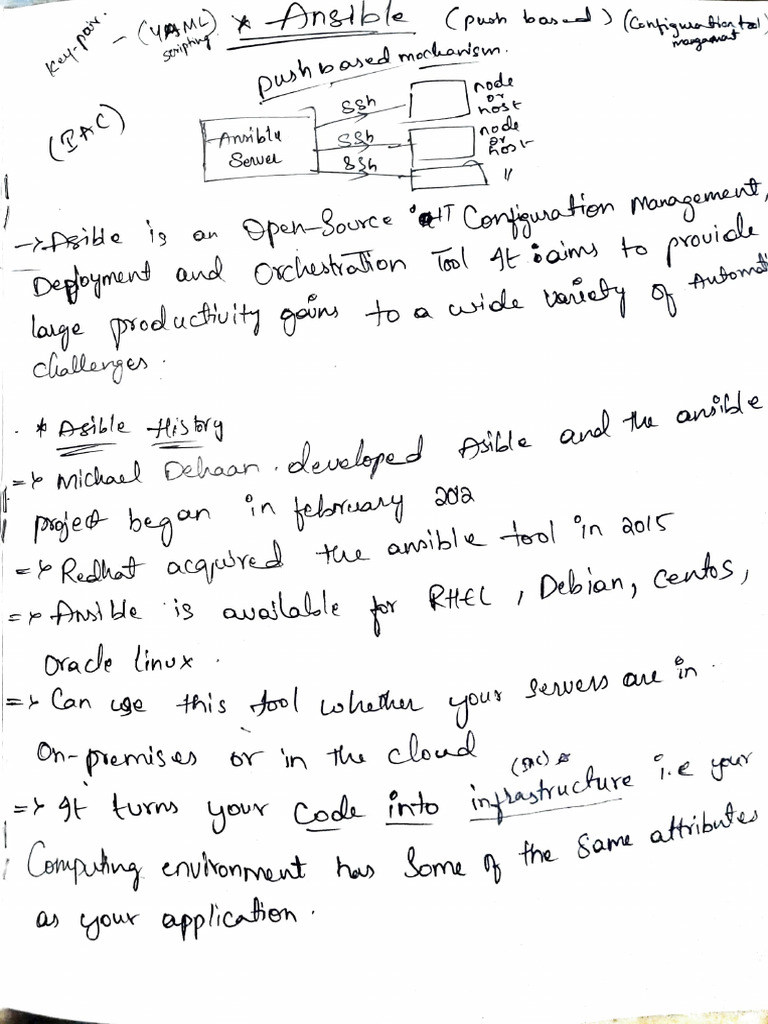 Key-pair. - (YAML) scripting * Ansible (push based) (Configuration tool management
push based mechanism.
(IAC)
Ansible Server
ssh node or host
ssh node or host
ssh "
-> Asible is an Open-Source IT Configuration Management,
Deployment and Orchestration Tool It aims to provide
large productivity gains to a wide variety of Automati
challenges.
* Asible History
=> Michael Dehaan. developed Asible and the ansible
project began in february 2012
=> Redhat acquired the ansible tool in 2015
=> Ansible is available for RHEL, Debian, Centos,
Oracle linux.
=> Can use this tool whether your servers are in
On-premises or in the cloud
(IAC)
=> It turns your Code into infrastructure i.e your
Computing environment has Some of the Same attributes
as your application.